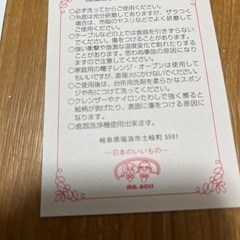 ○必ず洗ってからご使用ください。
○糸底は充分研磨してありますが、ザラつく
場合は、市販のヤスリなどでよく研磨して
ご使用ください。
○テーブルなどの上では器を引きずらない
でください。傷をつけることがあります。
○強い衝撃や急激な温度変化で割れたりする
ことがあります。思わぬ事故の原因になり
ますのでご注意ください。
○家庭用の電子レンジ・オーブンは使用して
もいいですが、直接火にかけないでください。
○ご使用後は、台所用洗剤と柔らかなスポン
ジや布にて洗ってください。
○クレンザーやナイロンたわしで強く擦ると
絵柄が剥れたり、表面に傷をつける原因に
なります。
○食器洗浄機使用出来ます。
岐阜県瑞浪市土岐町 5591
—日本のいいもの—